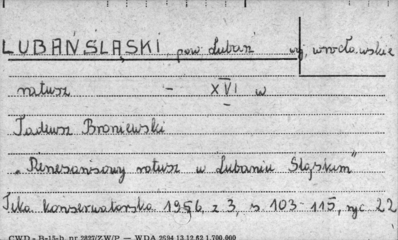 LUBAŃ ŚLĄSKI, pow. Lubań woj, wrocławskie
ratusz - XVI w
Tadeusz Broniewski
„Renesansowy ratusz w Lubaniu Śląskim"
Teka Konserwatorska 1956, z 3, s. 103-115, ryc 22
CWD - Bz-15-b, nr 2827/ZW/P — WDA 2654 13.12.62 1.700.000